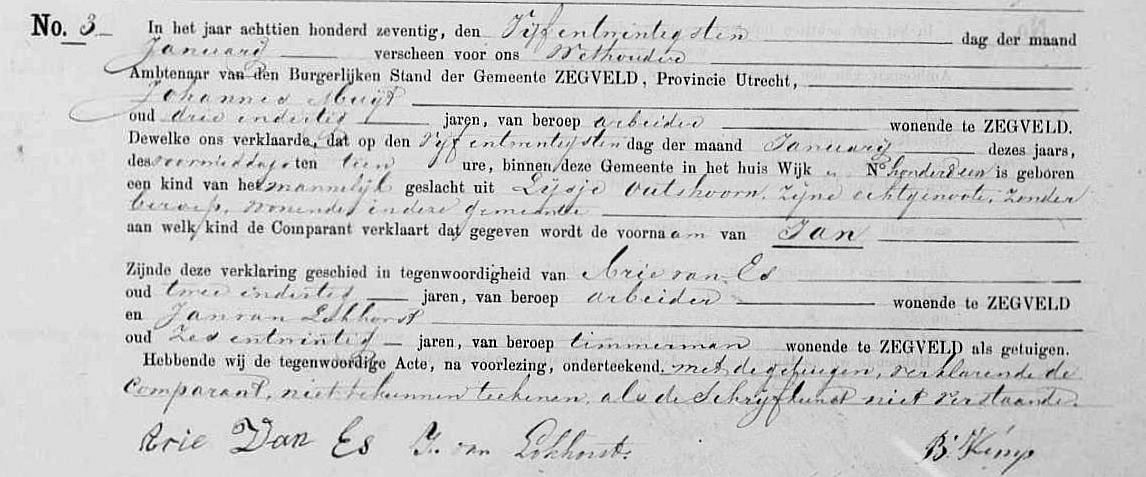 No. 3
In het jaar achttien honderd zeventig, den Vijfentwintigsten dag der maand
Januarij verscheen voor ons Wethouder
Ambtenaar van den Burgerlijken Stand der Gemeente ZEGVELD, Provincie Utrecht,
Johannes Muijt
oud drie endertig jaren, van beroep arbeider wonende te ZEGVELD.
Dewelke ons verklaarde, dat op den Vijf entwintigsten dag der maand Januarij dezes jaars,
des voormiddags ten tien ure, binnen deze Gemeente in het huis Wijk No honderd een is geboren
een kind van het mannelijk geslacht uit Lijsje Outshoorn, zijne echtgenoote, zonder
beroep, wonende in deze gemeente
aan welk kind de Comparant verklaart dat gegeven wordt de voornaam van Jan
Zijnde deze verklaring geschied in tegenwoordigheid van Arie van Es
oud twee endertig jaren, van beroep arbeider wonende te ZEGVELD
en Jan van Lokhorst
oud Zes entwintig jaren, van beroep timmerman wonende te ZEGVELD als getuigen.
Hebbende wij de tegenwoordige Acte, na voorlezing, onderteekend, met de getuigen, verklarende de
Comparant, niet te kunnen teekenen, als de Schrijfkunst niet verstaande.
Arie Van Es J. van Lokhorst B. Kemp